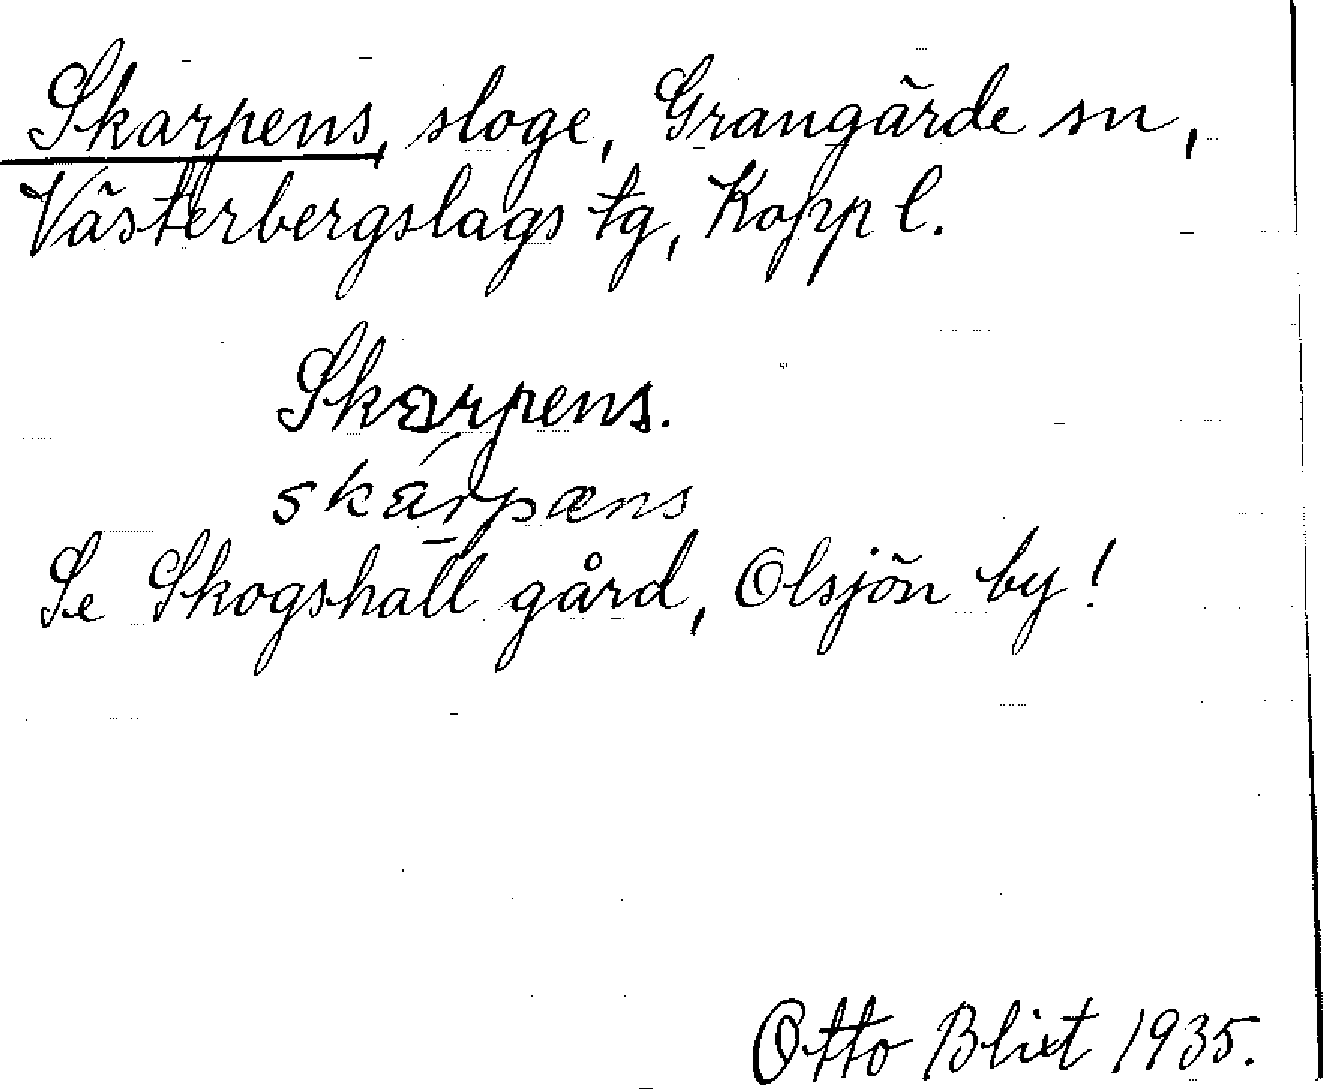 Skarpens, sloge, Grangärde sn,
Västerbergslags tg, Kopp l.
Skarpens.
skárpæns
Se Skogshall gård, Olsjön by!
Otto Blixt 1935.